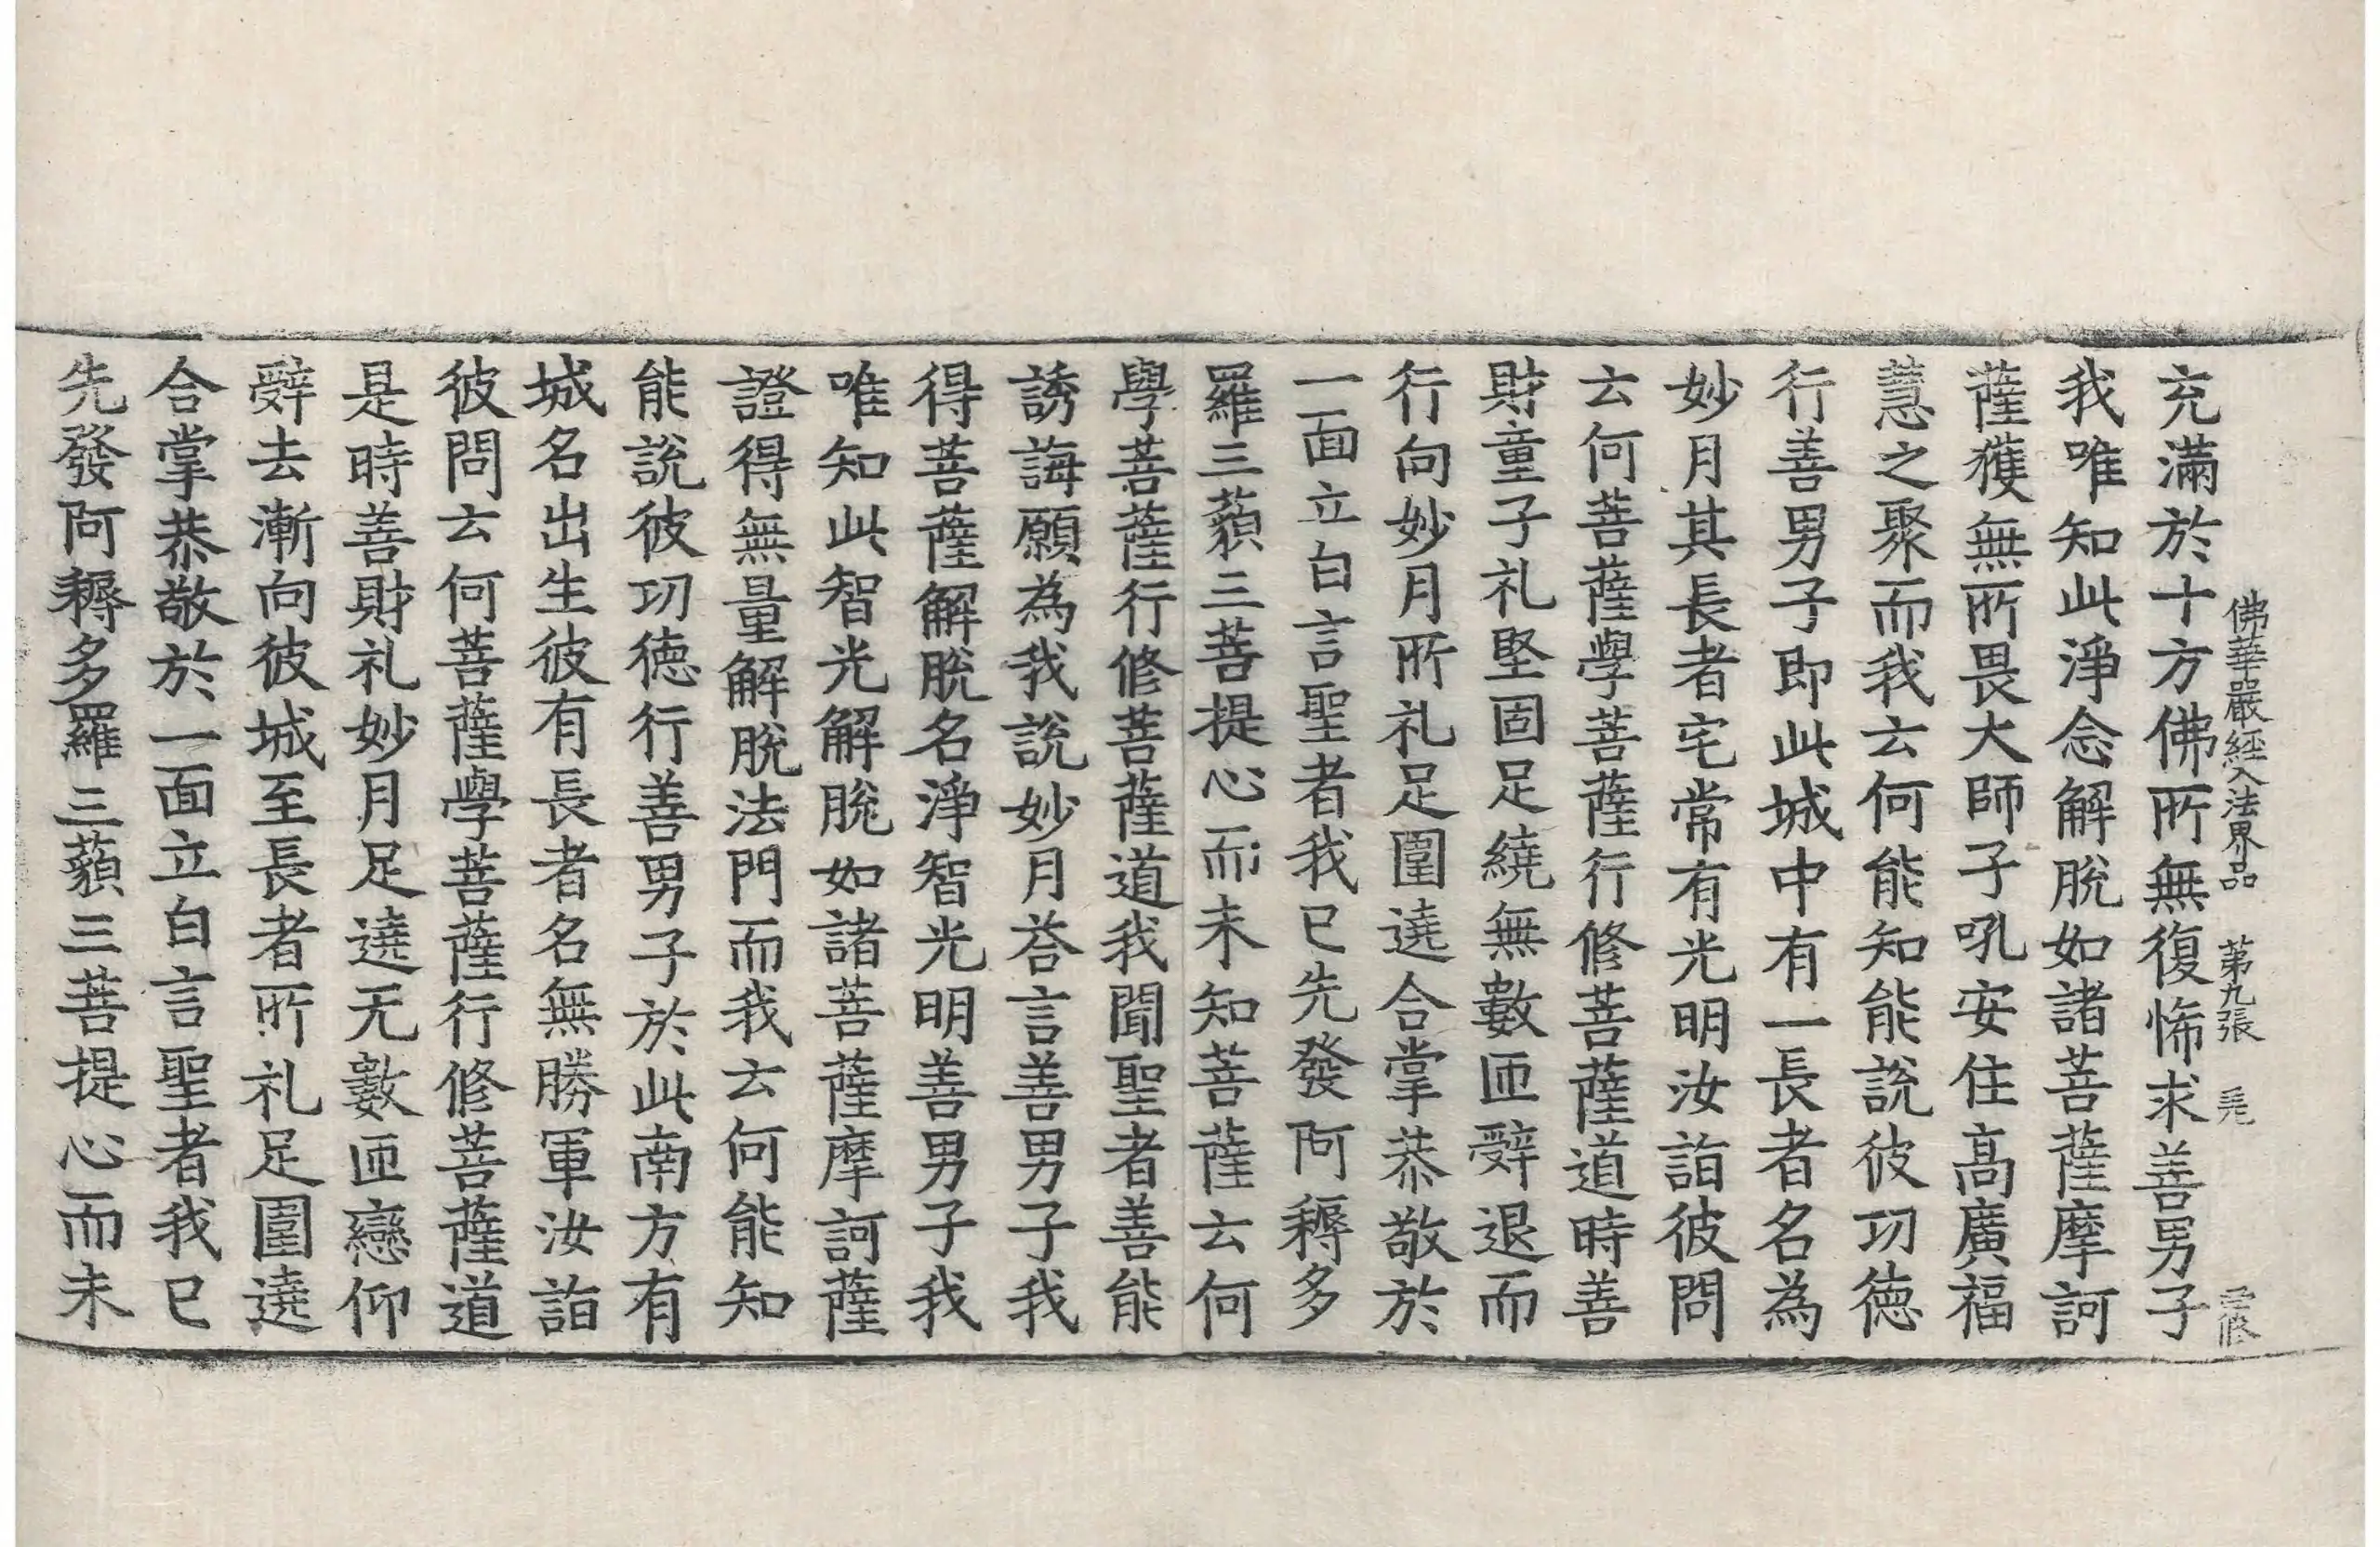 佛華嚴經入法界品 第九張
充滿於十方佛所無復怖求善男子
我唯知此淨念解脫如諸菩薩摩訶
薩獲無所畏大師子吼安住高廣福
慧之聚而我云何能知能說彼功德
行善男子即此城中有一長者名為
妙月其長者宅常有光明汝詣彼問
云何菩薩學菩薩行修菩薩道時善
財童子礼堅固足繞無數匝辝退而
行向妙月所礼足圍遶合掌恭敬於
一面立白言聖者我已先發阿耨多
羅三藐三菩提心而未知菩薩云何
學菩薩行修菩薩道我聞聖者善能
誘誨願為我說妙月荅言善男子我
得菩薩解脫名淨智光明善男子我
唯知此智光解脫如諸菩薩摩訶薩
證得無量解脫法門而我云何能知
能說彼功德行善男子於此南方有
城名出生彼有長者名無勝軍汝詣
彼問云何菩薩學菩薩行修菩薩道
是時善財礼妙月足遶无數匝戀仰
辝去漸向彼城至長者所礼足圍遶
合掌恭敬於一面立白言聖者我已
先發阿耨多羅三藐三菩提心而未